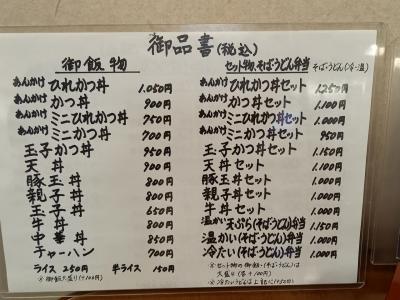 御品書(税込)
御飯物
あんかけ ひれかつ丼 1.050円
あんかけ かつ丼 900円
あんかけ ミニひれかつ丼 750円
あんかけ ミニかつ丼 700円
玉子かつ丼 950円
天丼 900円
豚玉丼 800円
親子丼 800円
玉子丼 650円
牛丼 800円
中華丼 850円
チャーハン 700円
ライス 250円 半ライス 150円
※御飯大盛り(+100円)
セット物、そば・うどん弁当 そば・うどん(冷・温)
あんかけ ひれかつ丼セット 1.250円
あんかけ かつ丼セット 1.100円
あんかけ ミニひれかつ丼セット 1.000円
あんかけ ミニかつ丼セット 950円
玉子かつ丼セット 1.150円
天丼セット 1.100円
豚玉丼セット 1.000円
親子丼セット 1.000円
牛丼セット 1.000円
温かい 天ぷら(そば・うどん)弁当 1.150円
温かい(そば・うどん)弁当 1.000円
冷たい(そば・うどん)弁当 1.000円
※セット物の御飯・(そば・うどん)は
大盛り(各+100円)